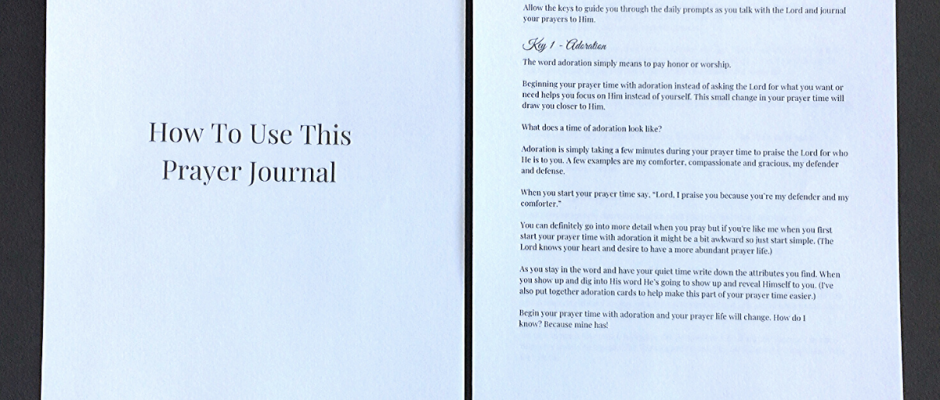 How To Use This
Prayer Journal
Allow the keys to guide you through the daily prompts as you talk with the Lord and journal
your prayers to Him.
Key 1 - Adoration
The word adoration simply means to pay honor or worship.
Beginning your prayer time with adoration instead of asking the Lord for what you want or
need helps you focus on Him instead of yourself. This small change in your prayer time will
draw you closer to Him.
What does a time of adoration look like?
Adoration is simply taking a few minutes during your prayer time to praise the Lord for who
He is to you. A few examples are my comforter, compassionate and gracious, my defender
and defense.
When you start your prayer time say, "Lord, I praise you because you're my defender and my
comforter."
You can definitely go into more detail when you pray but if you're like me when you first
start your prayer time with adoration it might be a bit awkward so just start simple. (The
Lord knows your heart and desire to have a more abundant prayer life.)
As you stay in the word and have your quiet time write down the attributes you find. When
you show up and dig into His word He's going to show up and reveal Himself to you. (I've
also put together adoration cards to help make this part of your prayer time easier.)
Begin your prayer time with adoration and your prayer life will change. How do I
know? Because mine has!